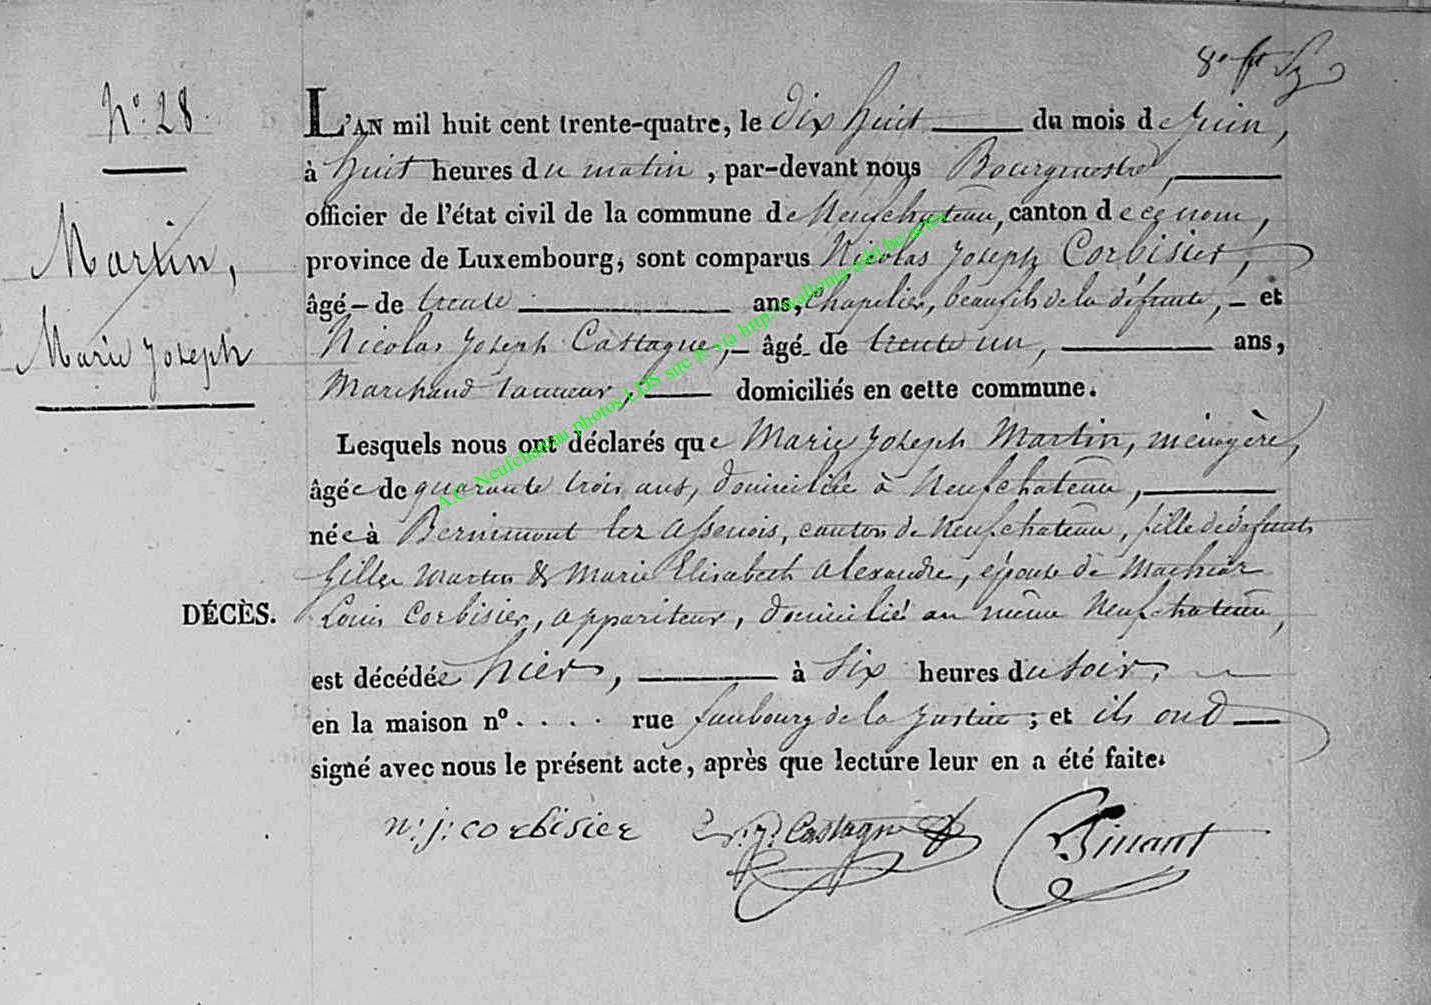 N° 28.
Martin,
Marie Joseph
L'AN mil huit cent trente-quatre, le dix huit du mois de juin,
à huit heures du matin, par-devant nous Bourgmestre,
officier de l'état civil de la commune de Neufchateau, canton de ce nom,
province de Luxembourg, sont comparus Nicolas Joseph Corbisier,
âgé – de trente ans, Chapelier, beaufils de la défunte, – et
Nicolas Joseph Castagne, – âgé – de trente un, ans,
Marchand tanneur, domiciliés en cette commune.
Lesquels nous ont déclarés que Marie Joseph Martin, ménagère,
âgée de quarante trois ans, domiciliée à Neufchateau,
née à Bernimont lez Assenois, canton de Neufchateau, fille de défunts
Gille Martin & Marie Elisabeth Alexandre, épouse de
Louis Corbisier, appariteur, domicilié au même Neufchateau,
DÉCÈS.
est décédée hier, à Six heures du soir,
en la maison n°. . . . rue faubourg de la Justice ; et ils ont
signé avec nous le présent acte, après que lecture leur en a été faite.
n: j: corbisier
Castagne
A.C. Neufchateau photos LDS site R via http://wallonia-asbl.be/actes